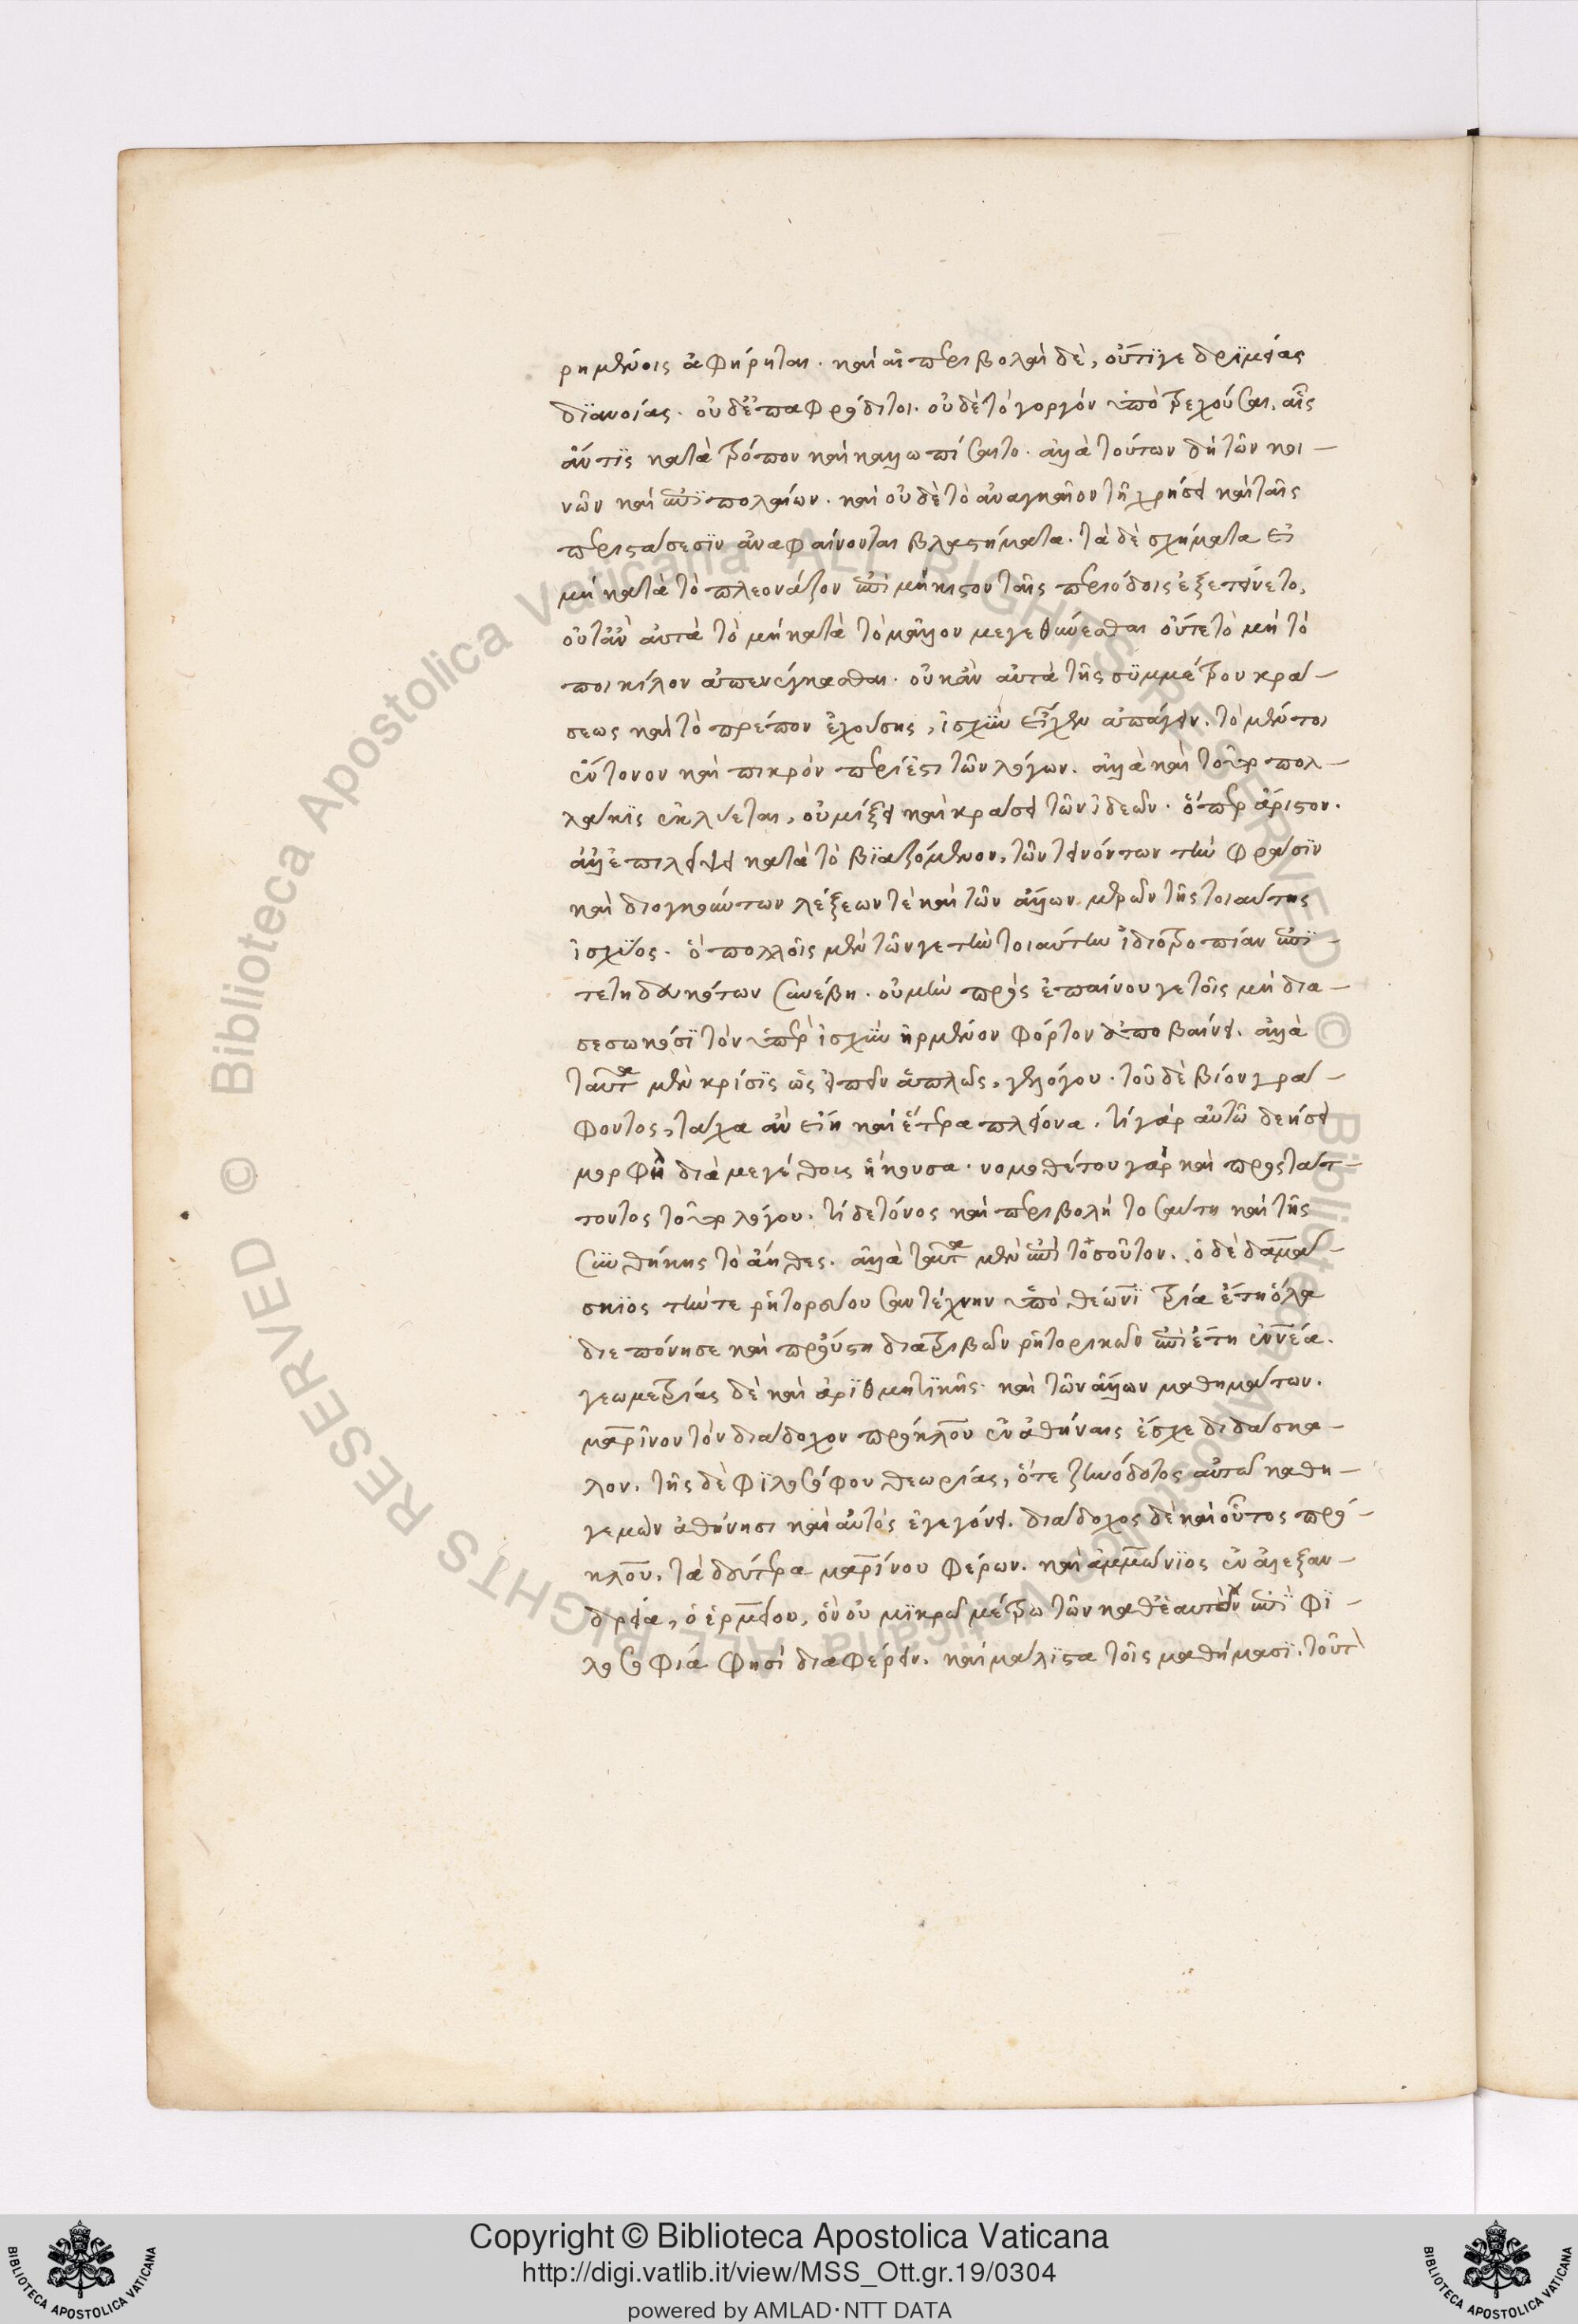 ρημένοις ἀφῄρηται. καὶ αἱ περιβολαὶ δὲ, οὔτι γε δριμείας
διανοίας. οὐδ' ἐπαφρόδιτοι. οὐδὲ τὸ γοργὸν ὑποτρέχουσαι. αἷς
ἄν τις κατὰ τρόπον καὶ καλλωπίσαιτο. ἀλλὰ τούτων δὴ τῶν κοι-
νῶν καὶ ἐπιπολαίων. καὶ οὐδὲ τὸ ἀναγκαῖον τῇ χρήσει καὶ ταῖς
περιστάσεσιν ἀναφαίνονται βλαστήματα. τὰ δὲ σχήματα εἰ
μὴ κατὰ τὸ πλεονάζον ἐπὶ μήκιστον ταῖς περιόδοις ἐξετείνετο,
οὔτ' ἂν αὐτὰ τὸ μὴ κατὰ τὸ κάλλον μεγεθύνεσθαι οὔτε τὸ μὴ τὸ
ποικίλον ἀπενέγκασθαι. οὐκ ἂν αὐτὰ τῆς συμμέτρου κρά-
σεως καὶ τὸ πρέπον ἐχούσης, ἰσχὺν εἶχεν ἀπάγειν. τὸ μέντοι
εὔτονον καὶ πικρὸν περίεστι τῶν λόγων. ἀλλὰ καὶ τοῦθ' ὑπερ πολ-
λάκις ἐκλύεται, οὐ μίξει καὶ κράσει τῶν ἰδεῶν. ὅπερ ἄριστον.
ἀλλ' ἐπιλείψει κατὰ τὸ βιαζόμενον, τῶν τεινόντων τὴν φράσιν
καὶ διογκούντων λέξεων τὲ καὶ τῶν ἄλλων μερῶν τῆς τοιαύτης
ἰσχύος. ὃ πολλοῖς μὲν τῶν γε τὴν τοιαύτην ἰδιοτροπίαν ἐπι-
τετηδευκότων συνέβη. οὐ μὴν πρὸς ἐπαίνου γε τοῖς μὴ δια-
σεσωκόσι τὸν ὑπὲρ ἰσχὺν ἠρμένον φόρτον ἀποβαίνει. ἀλλὰ
ταῦτα μὲν κρίσις ὡς εἰπεῖν ἁπλῶς, λόγου. τοῦ δὲ βίον γρά-
φοντος, τάχα ἂν εἴη καὶ ἕτερα πλείονα. τί γὰρ αὐτῷ δεήσει
μορφὴ διὰ μεγέθους ἥκουσα. νομοθέτου γὰρ καὶ προστάτ-
τοντος τοῦ λόγου. τί δε τόνος καὶ περιβολὴ τοσαύτη καὶ τῆς
συνθήκης τὸ ἄηθες. ἀλλὰ ταῦτα μὲν ἐπὶ τοσοῦτον. ὁ δὲ δαμά-
σκιος τήν τε ῥητορεύουσαν τέχνην ὑπὸ θέωνι τρία ἔτη ὅλα
διεπόνησε καὶ προὔστη διατριβῶν ῥητορικῶν ἐπὶ ἔτη ἐννέα.
γεωμετρίας δὲ καὶ ἀριθμητικῆς καὶ τῶν ἄλλων μαθημάτων.
μαρῖνον τὸν διάδοχον πρόκλου ἐν ἀθήναις ἔσχε διδάσκα-
λον. τῆς δὲ φιλοσόφου θεωρίας, ὅτε ζηνόδοτος αὐτῷ καθη-
γεμὼν ἀθήνησι καὶ αὐτὸς ἐγεγόνει. διάδοχος δὲ καὶ οὗτος πρό-
κλου, τὰ δεύτερα μαρίνου φέρων. καὶ ἀμμώνιος ἐν ἀλεξαν-
δρείᾳ, ὁ ἑρμείου, ὃν οὐ μικρῷ μέτρῳ τῶν καθ' ἑαυτὸν ἐπὶ φι-
λοσοφίᾳ φησὶ διαφέρειν. καὶ μάλιστα τοῖς μαθήμασι. τοῦτ
Copyright © Biblioteca Apostolica Vaticana
http://digi.vatlib.it/view/MSS_Ott.gr.19/0304
powered by AMLAD·NTT DATA